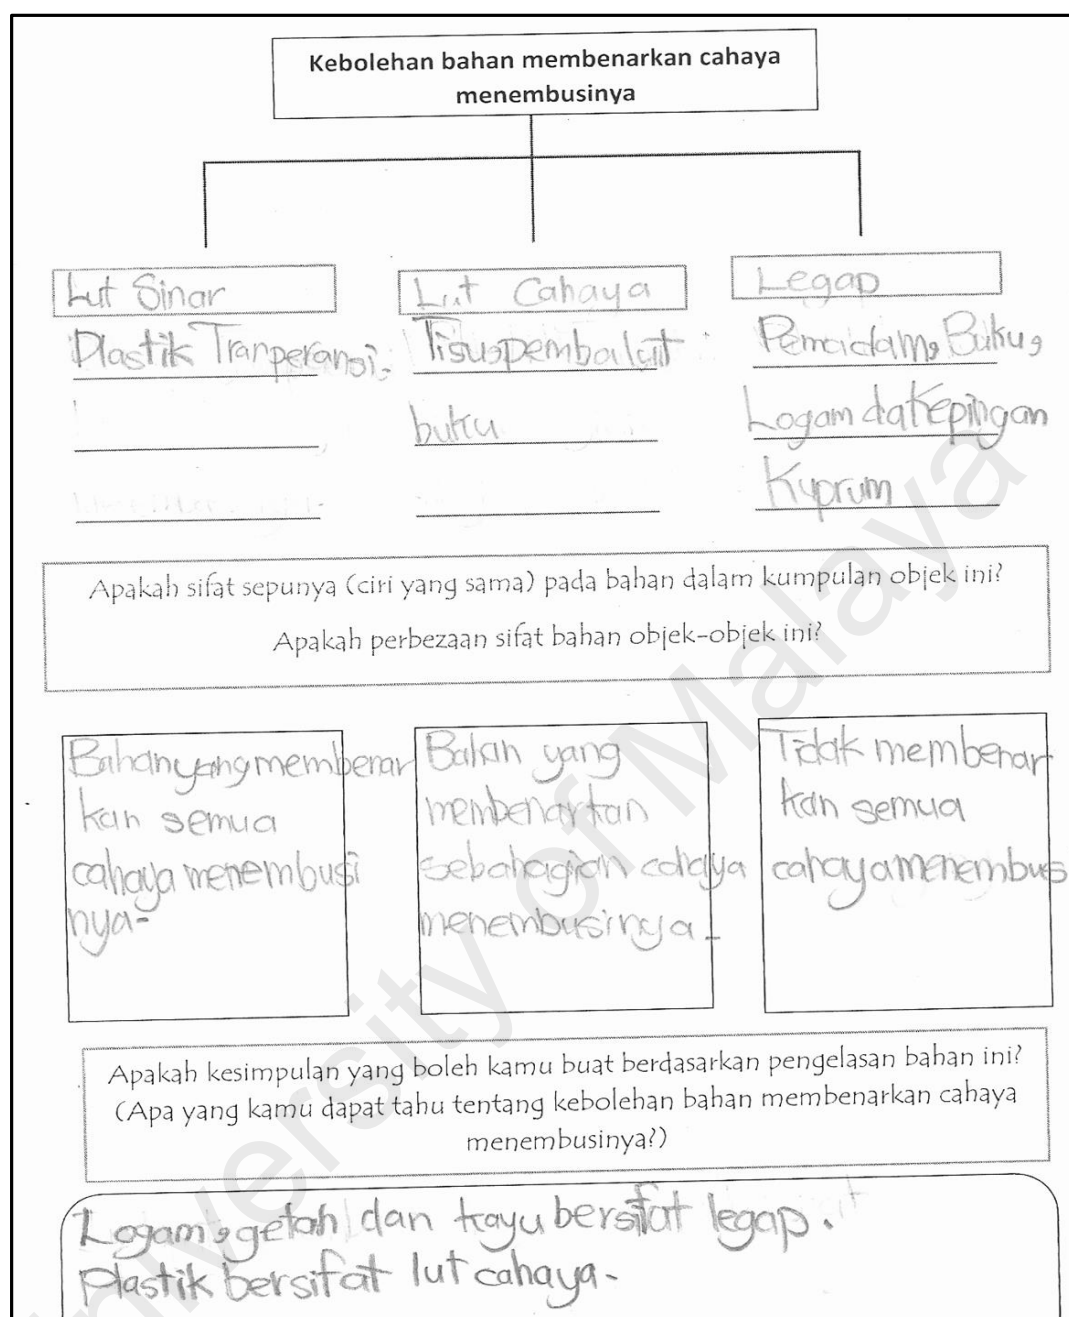 Kebolehan bahan membenarkan cahaya
menembusinya
Lut Sinar
Lut Cahaya
Legap
Plastik Tranperansi.
Tisu, pembalut
Pemadam, Buku,
buku
Logam da kepingan
Kuprum
Apakah sifat sepunya (ciri yang sama) pada bahan dalam kumpulan objek ini?
Apakah perbezaan sifat bahan objek-objek ini?
Bahan yang membenar
kan semua
cahaya menembusi
nya-
Bahan yang
membenarkan
sebahagian cahaya
menembusinya-
Tidak membenar
kan semua
cahaya menembus
Apakah kesimpulan yang boleh kamu buat berdasarkan pengelasan bahan ini?
(Apa yang kamu dapat tahu tentang kebolehan bahan membenarkan cahaya
menembusinya?)
Logam, getah dan kayu bersifat legap.
Plastik bersifat lut cahaya-
University of Malaya